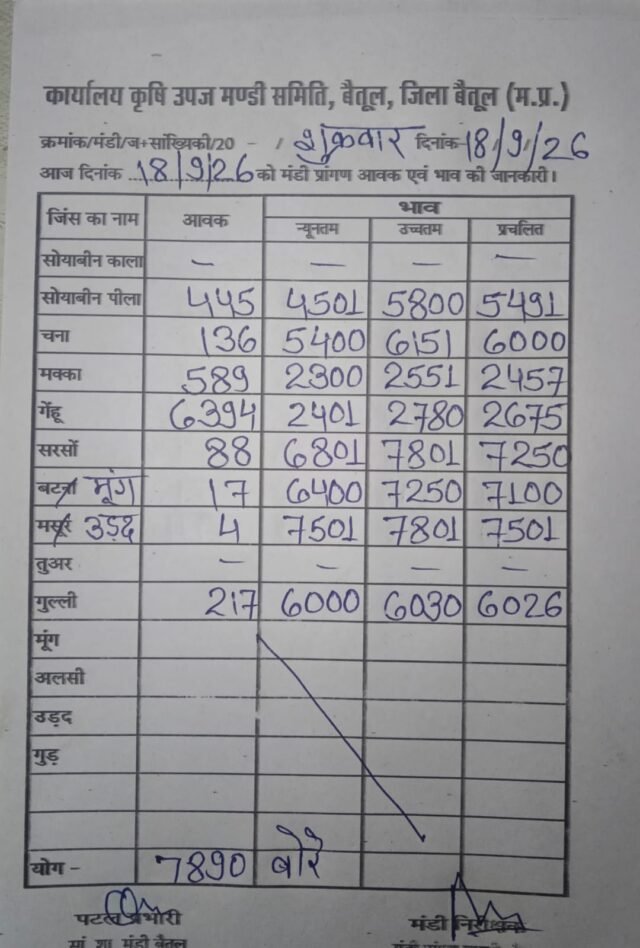 कार्यालय कृषि उपज मण्डी समिति, बैतूल, जिला बैतूल (म.प्र.)
क्रमांक/मंडी/ज+सांख्यिकी/20 - / शुक्रवार दिनांक 18/9/26
आज दिनांक 18/9/26 को मंडी प्रांगण आवक एवं भाव की जानकारी।
जिंस का नाम आवक भाव
न्यूनतम उच्चतम प्रचलित
सोयाबीन काला — — — —
सोयाबीन पीला 445 4501 5800 5491
चना 136 5400 6151 6000
मक्का 589 2300 2551 2457
गेंहू 6394 2401 2780 2675
सरसों 88 6801 7801 7250
बटरा मूंग 17 6400 7250 7100
मसूर उड़द 4 7501 7801 7501
तुअर — — — —
गुल्ली 217 6000 6030 6026
मूंग
अलसी
उड़द
गुड़
योग - 7890 बोरे
पटल प्रभारी मंडी निरीक्षक
मां शा मंडी बैतूल